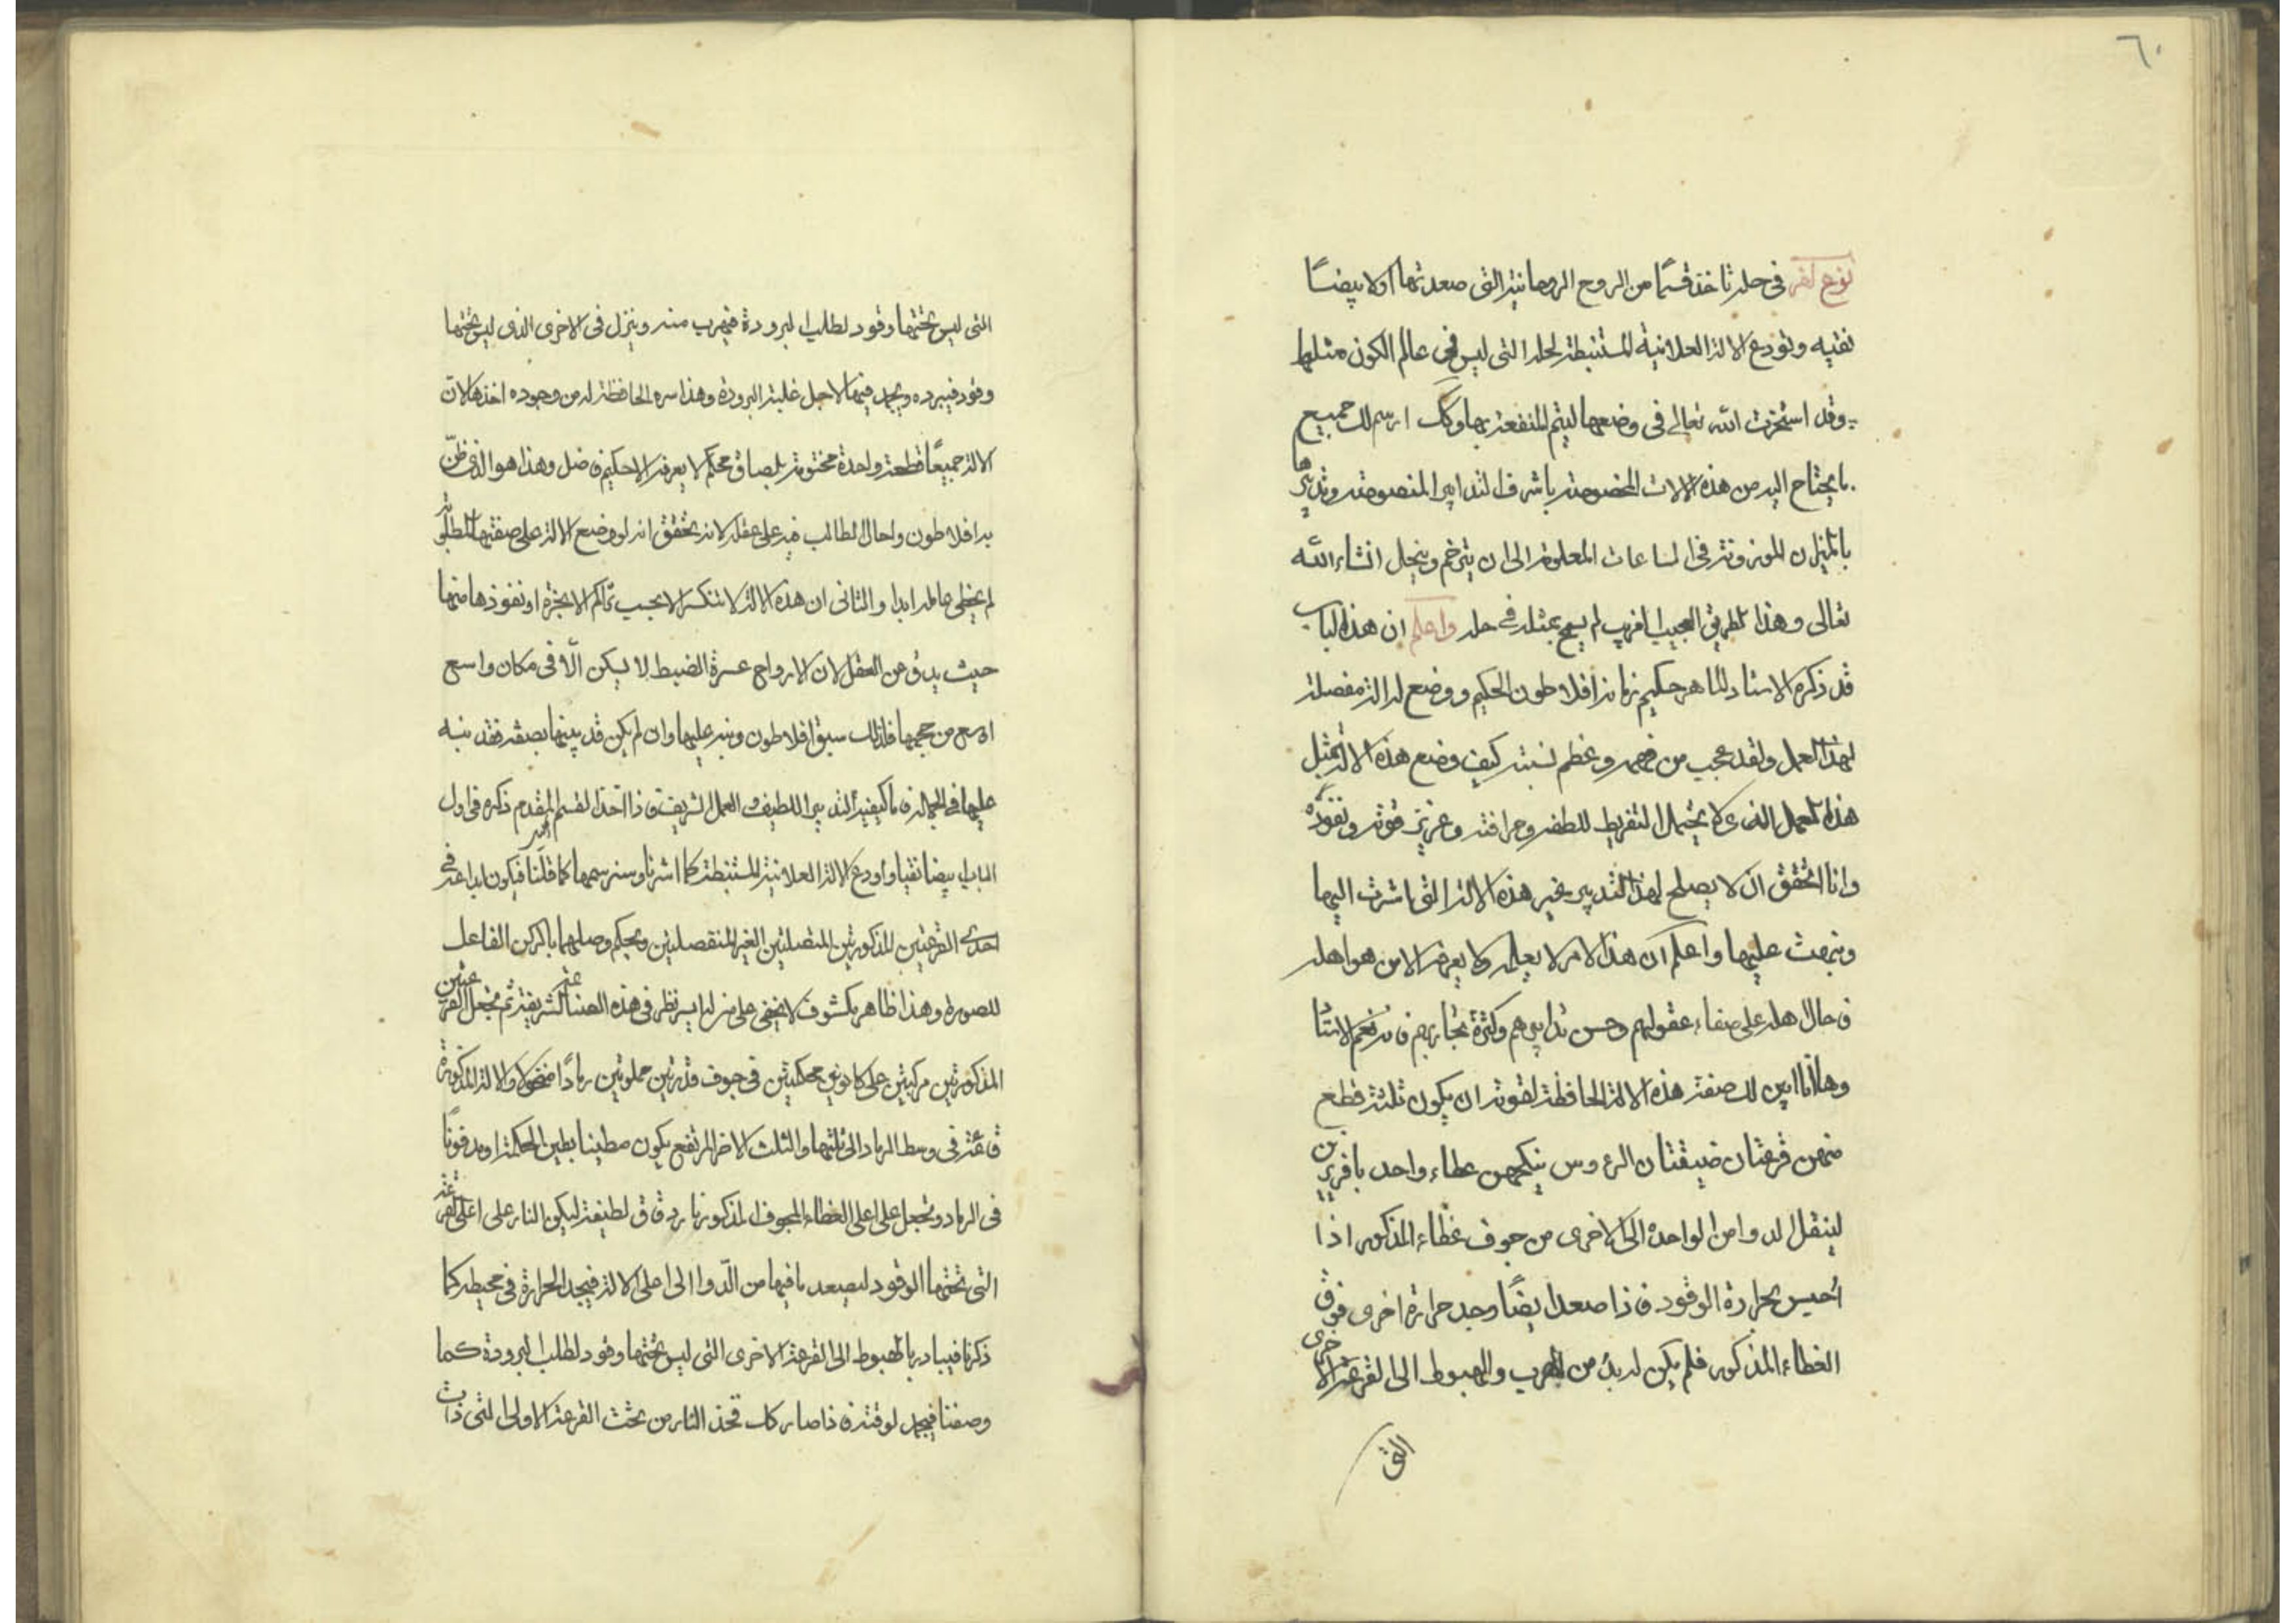 ٦٠
نوع اخر في حله تاخذ قسمًا من الروح الروحانية التى صعدتها اولا بيضًا
نقيه وتودع الالة العلانية المستنبطة لحله التى ليس في عالم الكون مثلها
وقد استخرت الله تعالى في وضعها ليتم المنفعة بها وكك ارسم لك جميع
ما يحتاج اليه من هذه الالات المخصوصة باشرف التدابير المنصوصة وتدبيرها
بالميزان الموزونة في الساعات المعلومة الى ان يترخم وينحل انشاء الله
تعالى وهذا الطريق العجيب الغريب لم يسمح بمثله في حله واعلم ان هذا الباب
قد ذكره الاستاد الماهر حكيم زمانه افلاطون الحكيم ووضع له الة مفصلة
لهذا العمل ولقد عجبت من فهمه وعظم نسبته كيف وضع هذه الالة بمثل
هذا العمل الذى لا يحتمل التفريط للطفه وحرافته وغريزى قوته ونفوذه
وانا اتحقق ان لا يصلح لهذا التدبير بغير هذه الالة التى اشرت اليها
ونبهت عليها واعلم ان هذا الامر لا يعلمه ولا يعرفه الا من هو اهله
فحال اهله على صفاء عقولهم وحسن تدابيرهم وكثرة تجاربهم
وها انا ابين لك صفة هذه الالة الحافظة لقوته ان يكون ثلثة قطع
منهن قرعتان ضيقتان الرءوس ينكحهن عطاء واحد بافريزين
لينتقل الدوا من الواحدة الى الاخرى من جوف غطاء المذكور اذا
احس بحرارة الوقود فاذا صعد ايضًا وجد حرارة اخرى فوق
الغطاء المذكور فلم يكن له بدٌ من الهرب والهبوط الى القرعة الاخرى
التى
التى ليس تحتها وقود لطلب البرودة فيهرب منه وينزل في الاخرى الذى ليس تحتها
وقود فيبرده ويجمد فيها لاجل غلبة البرودة وهذا سره الحافظة له من وجوده اخذها لانّ
الالة جميعًا قطعة واحدة مختومة بلصاق محكم لا يعرفه الا حكيم فاضل وهذا هو الذى ظنّ
به افلاطون واحال الطالب فيه على عقله لانه تحقق انه لو وضع الالة على صفتها المطلوبة
لم يخطى عامله ابدا والثانى ان هذه الالة لا تنكسر الا بحسب تراكم الابخرة او نفوذها منها
حيث يدق عن العقل لان الارواح عسرة الضبط لا يسكن الّا في مكان واسع
اوسع من حجمها فلذلك سبق افلاطون ونبه عليها وان لم يكن قد بينها بصفة فقد نبه
عليها في الجمالة فاما كيفية التدبير اللطيف والعمل الشريف فاذا اخذ القسم المقدم ذكره في اول
الباب ابيضا نقيا واودع الالة العلانية المستنبطة كما اشرنا وسنرسمها كما قلنا فيكون ايداعه في
احدى القرعتين المذكورتين المتصلتين الغير المنفصلتين ويحكم وصلهما بالركن الفاعل
للصورة وهذا ظاهر مكشوف لا يخفى على من له ايسر نظر في هذه الصناعة الشريفة ثم تجعل القرعتين
المذكورتين مركبتين على كانونين محكمتين في جوف قدرتين مملوتين رمادًا منخولا والالة المذكورة
قائمة في وسط الرماد الى ثلثيها والثلث الاخر المرتفع يكون مطينا بطين الحكمة او مدفونًا
في الرماد وتجعل على اعلى الغطاء المجوف المذكور نار دقاق لطيفة ليكون النار على اعلى القرعة
التى تحتها الوقود ليصعد ما فيها من الدّوا الى اعلى الالة فيجد الحرارة في محيطه كما
ذكرنا فيبادر بالهبوط الى القرعة الاخرى التى ليس تحتها وقود لطلب البرودة كما
وصفنا فيجمد لوقته فاذا صار كك تخذ النار من تحت القرعة الاولى التى ذابت